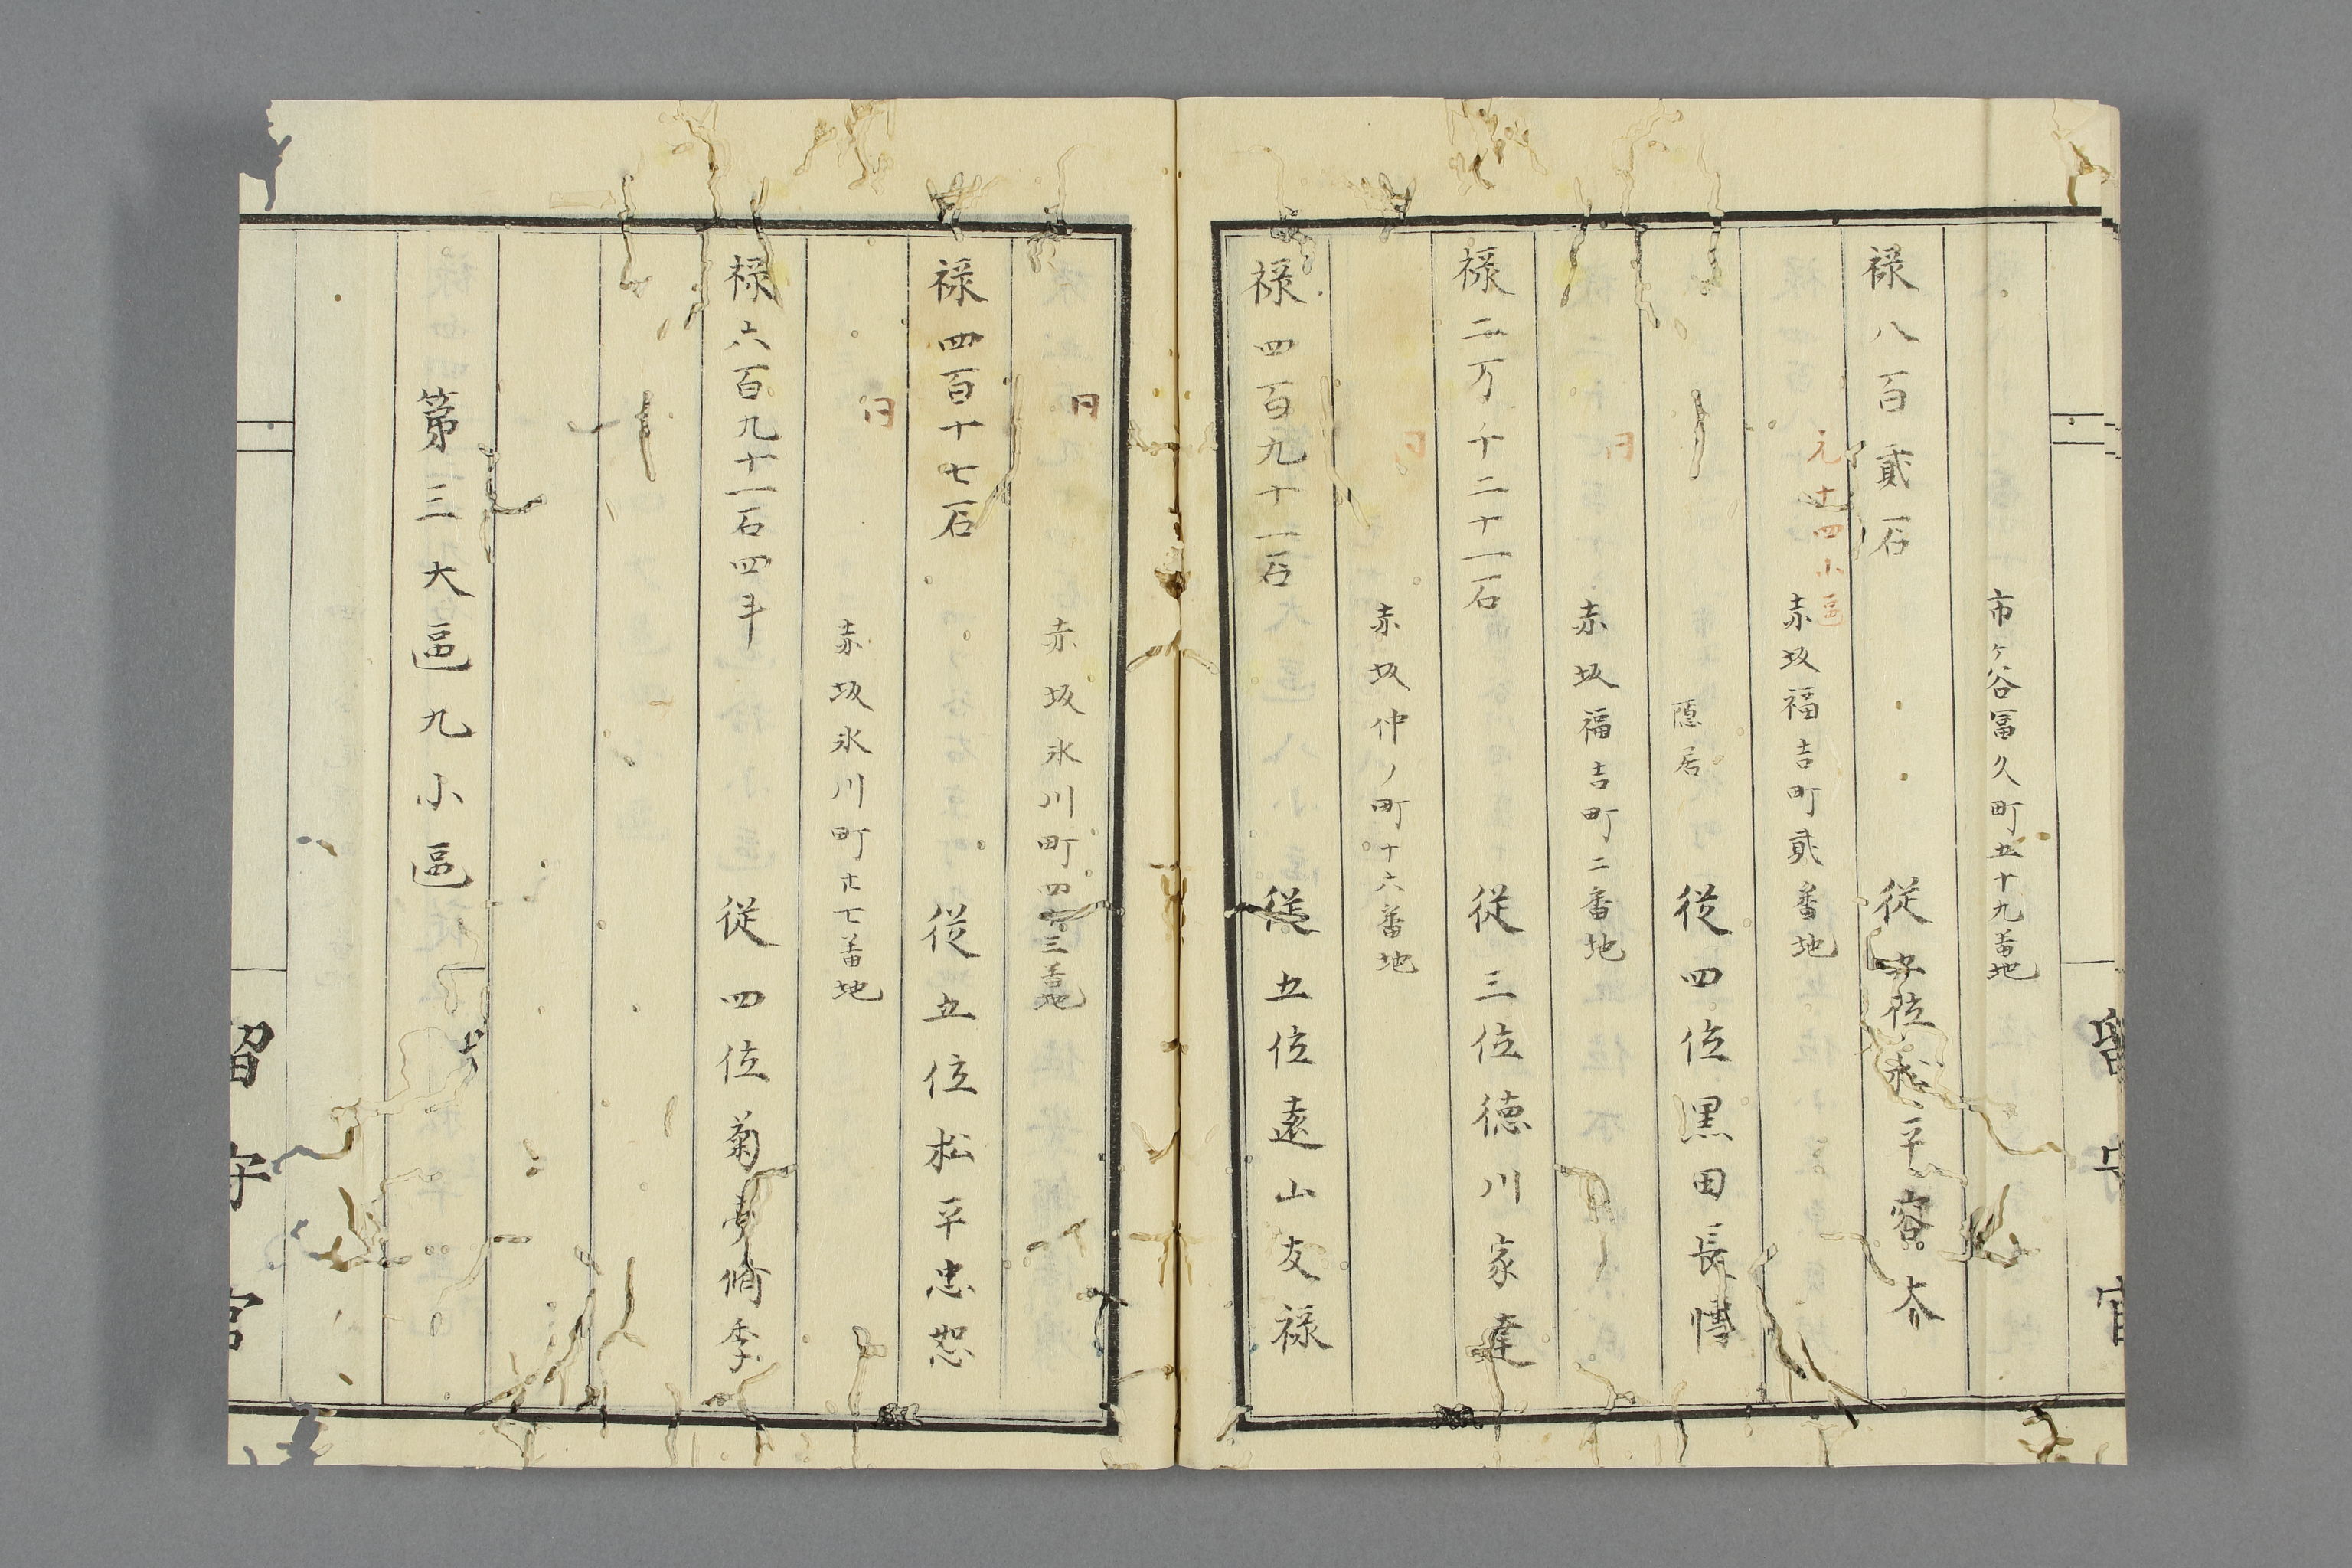 市ヶ谷冨久町五十九番地
禄八百貳石 従五位松平容大
元十四小區
赤坂福吉町貳番地
隠居 従四位黒田長愽
同
赤坂福吉町二番地
禄二万千二十一石 従三位徳川家達
同
赤坂仲ノ町十六番地
禄四百九十一石 従五位遠山友禄
同
赤坂氷川町四十三番地
禄四百十七石 従五位松平忠恕
同
赤坂氷川町廿七番地
禄六百九十一石四斗 従四位菊亭脩季
第三大區九小區
留守官
留守官